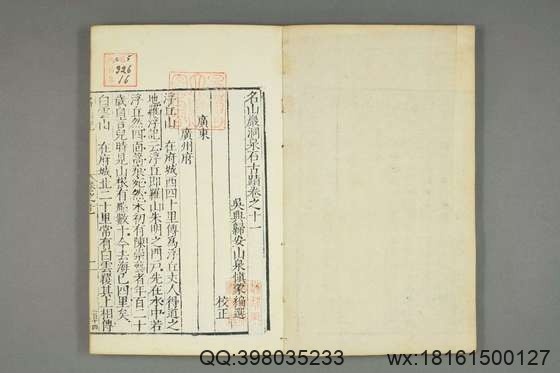 名山巖洞泉石古蹟卷之十一
吳興歸安山泉慎蒙編選
校正
廣東
廣州府
浮丘山 在府城西四十里傳爲浮丘丈人得道之
地羅浮記云浮丘即羅山朱明之門戶先在水中若
浮丘然四面
宋初有陳崇藝者年百二十
歲自言兒時見山根有
數十今去海已四里矣
白雲山 在府城北二十里常有白雲覆其上相傳
326
16
QQ:398035233
wx:18161500127